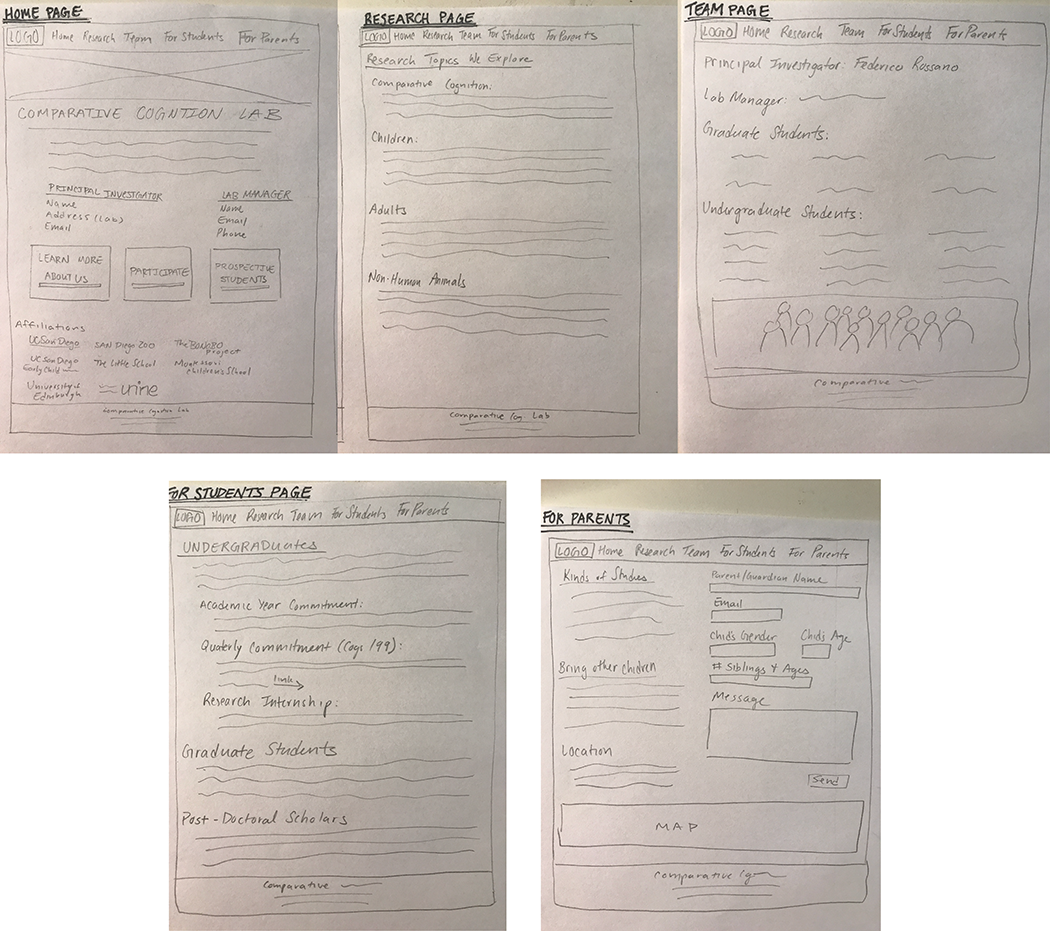 HOME PAGE
LOGO Home Research Team For Students For Parents
COMPARATIVE COGNTION LAB
PRINCIPAL INVESTIGATOR
Name
Address (Lab)
Email
LAB MANAGER
Name
Email
Phone
LEARN MORE
ABOUT US
PARTICIPATE
PROSPECTIVE
STUDENTS
Affiliations
UC San Diego
SAN Diego ZOO
The BONOBO
project
UC San Diego
Early Child
The Little School
Montessori
children's School
University of
Edinburgh
Comparative Cognition Lab
RESEARCH PAGE
LOGO Home Research Team For Students For Parents
Research Topics We Explore
Comparative Cognition:
Children:
Adults
Non-Human Animals
Comparative Cog. Lab
TEAM PAGE
LOGO Home Research Team For Students For Parents
Principal Investigator: Federico Rossano
Lab Manager:
Graduate Students:
Undergraduate Students:
Comparative
FOR STUDENTS PAGE
LOGO Home Research Team For Students For Parents
UNDERGRADUATES
Academic Year Commitment:
Quaterly Commitment (Cogs 199):
link
Research Internship:
Graduate Students
Post-Doctoral Scholars
Comparative
FOR PARENTS
LOGO Home Research Team For Students For Parents
Kinds of Studies
Bring other children
Location
Parent/Guardian Name
Email
Child's Gender
Child's Age
# Siblings & Ages
Message
Send
MAP
Comparative